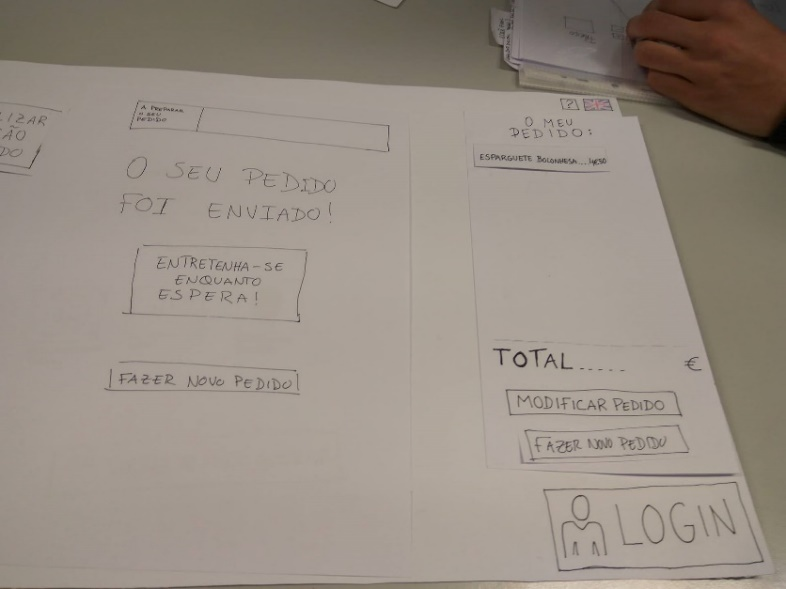 A PREPARAR
O SEU
PEDIDO
O SEU PEDIDO
FOI ENVIADO!
ENTRETENHA-SE
ENQUANTO
ESPERA!
FAZER NOVO PEDIDO
?
O MEU
PEDIDO:
ESPARGUETE BOLONHESA...
TOTAL..... €
MODIFICAR PEDIDO
FAZER NOVO PEDIDO
LOGIN